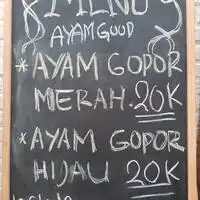 MENU
AYAM GOOD
* AYAM GOPOR
MERAH. 20K
* AYAM GOPOR
HIJAU 20K